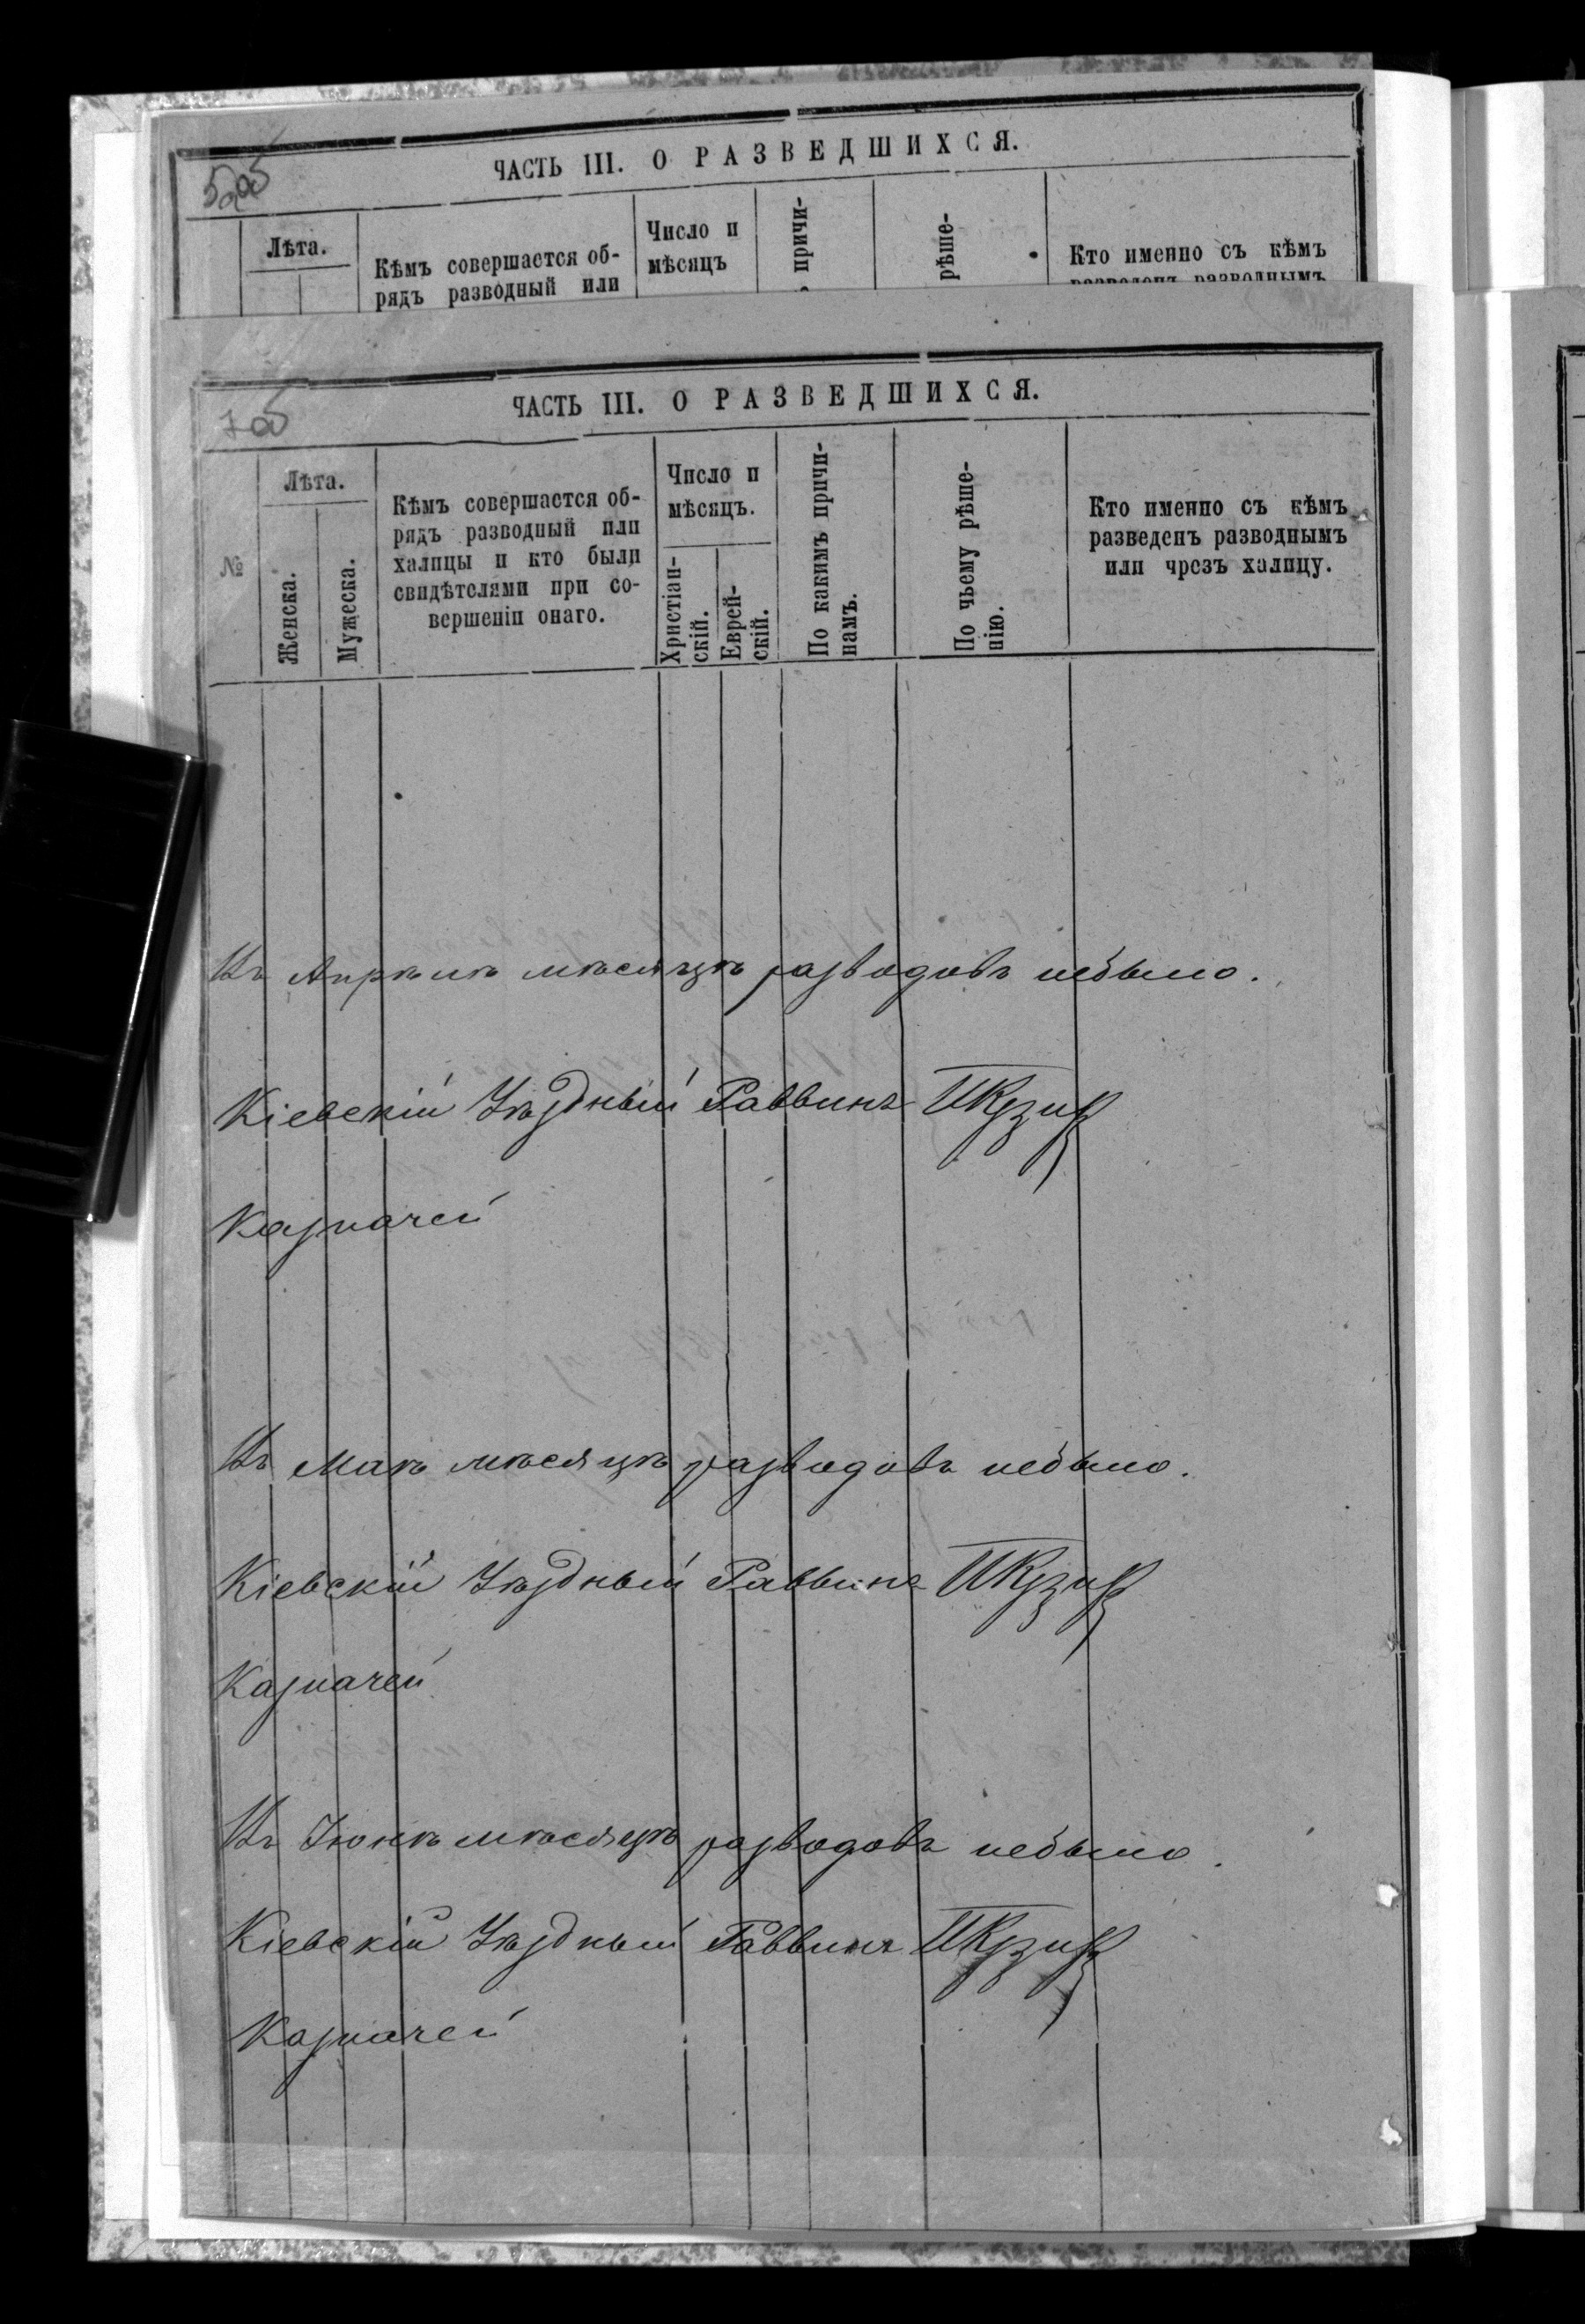 5об
ЧАСТЬ III. О РАЗВЕДШИХСЯ.
Лѣта.
Кѣмъ совершается об-
рядъ разводный или
Число и
мѣсяцъ
причи-
рѣше-
Кто именно съ кѣмъ
разведенъ разводнымъ
7об
ЧАСТЬ III. О РАЗВЕДШИХСЯ.
№
Лѣта.
Женска.
Мужеска.
Кѣмъ совершается об-
рядъ разводный или
халицы и кто были
свидѣтелями при со-
вершеніи онаго.
Число и
мѣсяцъ.
Христіан-
скій.
Еврей-
скій.
По какимъ причи-
намъ.
По чьему рѣше-
нію.
Кто именно съ кѣмъ
разведенъ разводнымъ
или чрезъ халицу.
Въ Апрѣлѣ мѣсяцѣ разводовъ небыло.
Кіевскій Уѣздный Раввинъ
Казначей
Въ Маѣ мѣсяцѣ разводовъ небыло.
Кіевскій Уѣздный Раввинъ
Казначей
Въ Іюнѣ мѣсяцѣ разводовъ небыло.
Кіевскій Уѣздный Раввинъ
Казначей